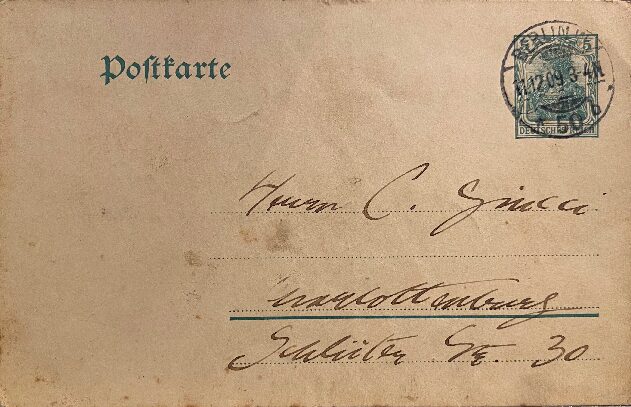 Postkarte
BERLIN W.
11.12.09. 3-4N
* 50 b
5
DEUTSCHES REICH
Herrn C.
Charlottenburg
Schlüter Str. 30